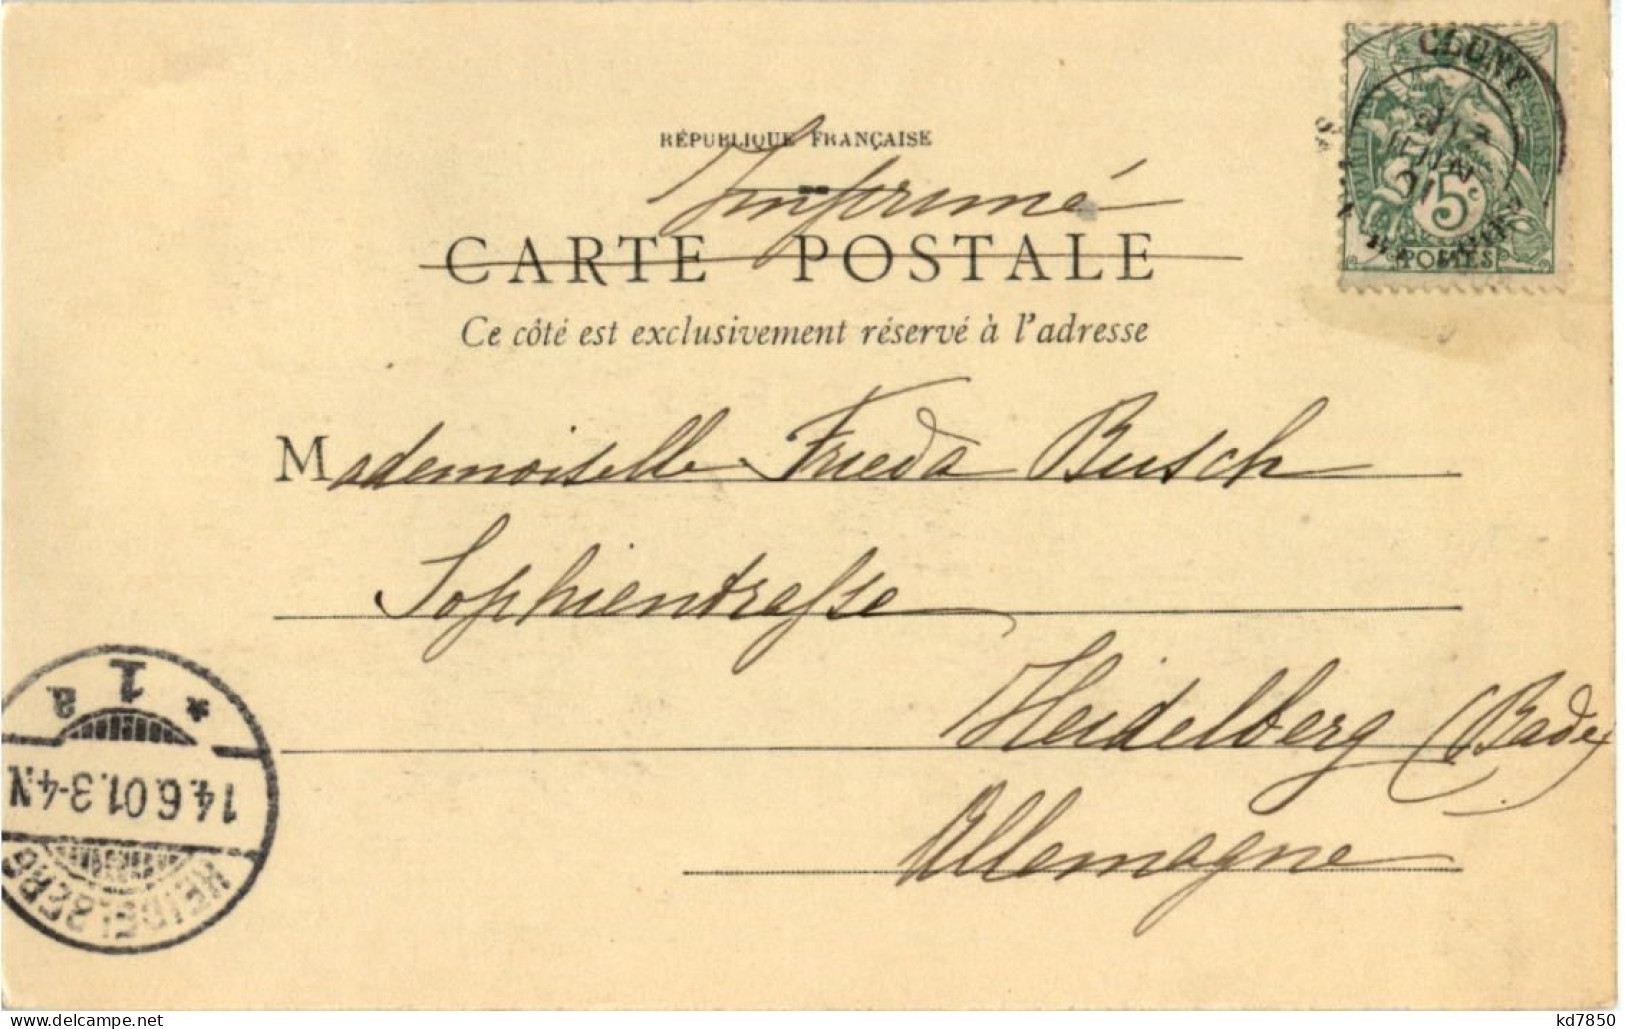 CLUNY
JUIN
01
RÉPUBLIQUE FRANÇAISE
5c
POSTES
Imprimé
CARTE POSTALE
Ce côté est exclusivement réservé à l'adresse
Mademoiselle Frieda Busch
Sophientresse
Heidelberg (Bade)
Allemagne
* 1 a
14.6.01.3-4N
HEIDELBERG
kd7850